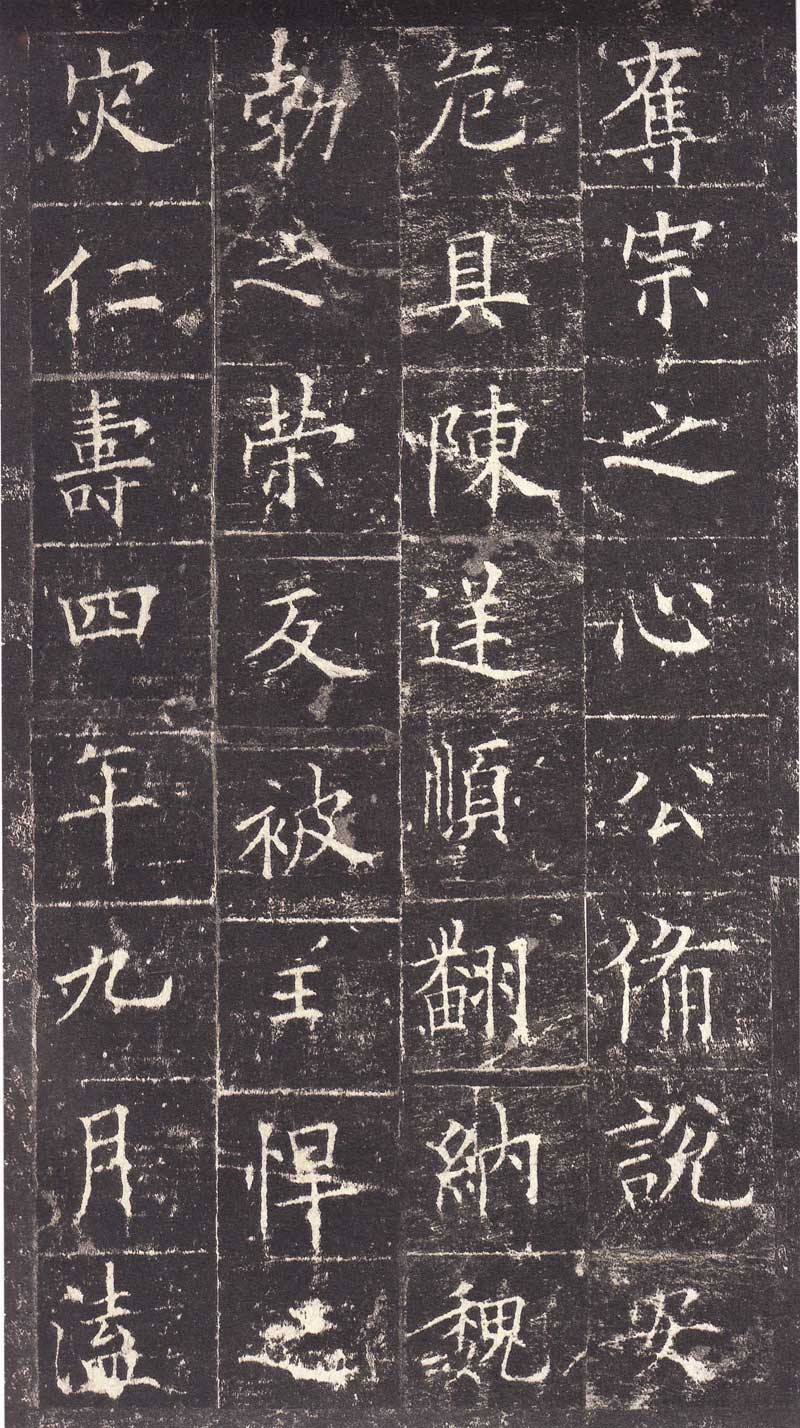 奪宗之心公備說安
危具陳逆順翻納魏
勃之策反被王悍之
灾仁壽四年九月溘